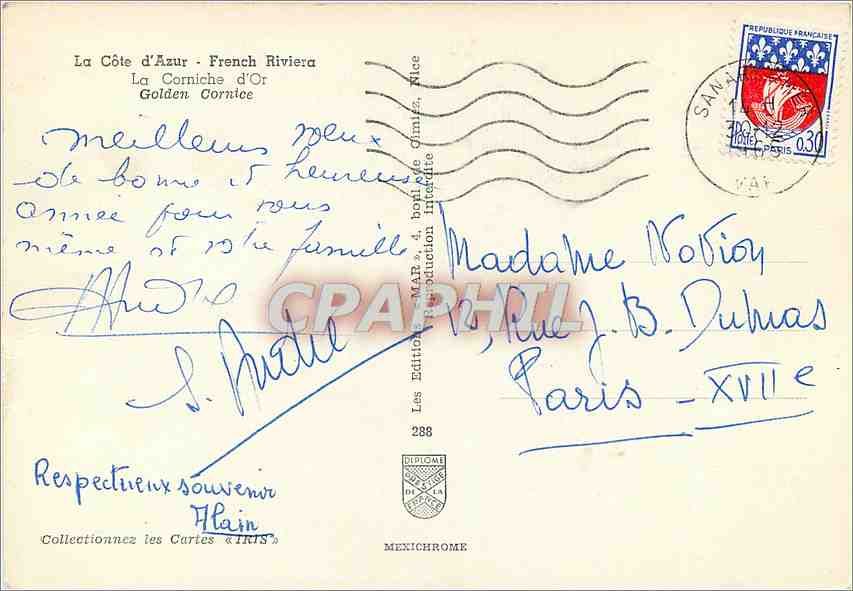 La Côte d'Azur - French Riviera
La Corniche d'Or
Golden Cornice
meilleurs vœux
de bonne et heureuse
année pour vous
même et votre famille
Respectueux souvenir
Alain
Collectionnez les Cartes «IRIS»
Les Editions «MAR», 4, boul. de Cimiez, Nice
Reproduction interdite
288
DIPLOME
PRESTIGE
DE LA
FRANCE
MEXICHROME
REPUBLIQUE FRANÇAISE
POSTES
0,30
PARIS
VAR
Madame
12, Rue J. B. Dumas
Paris - XVIIe
CPARHIL